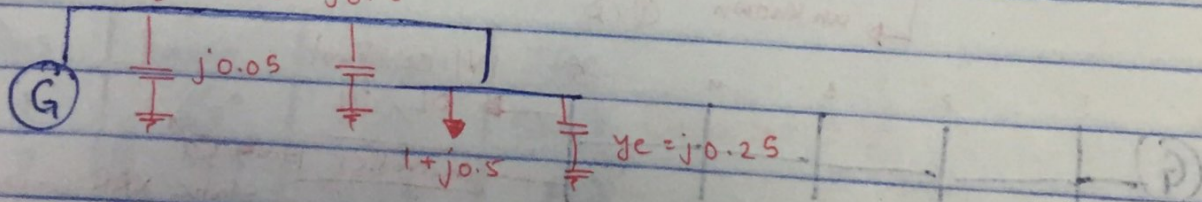 j0.05
G
1+j0.5
yc = j0.25